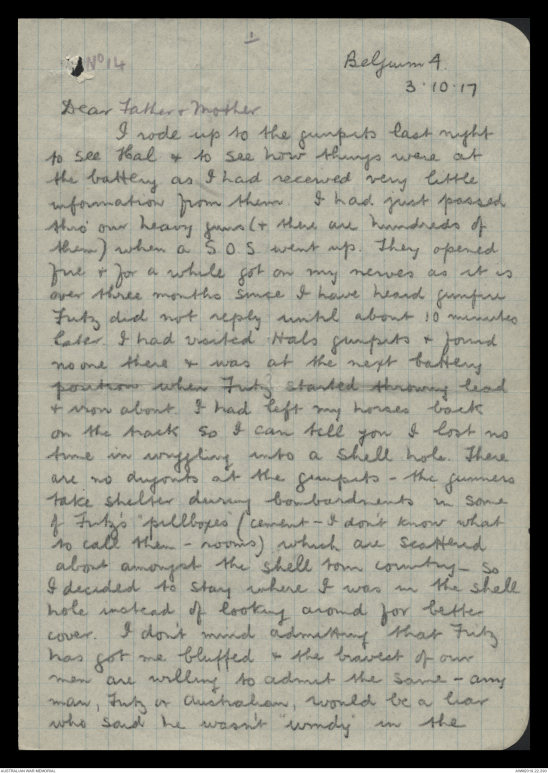 1
Nº 14
Belgium 4.
3.10.17
Dear Father & Mother
I rode up to the gunpits last night
to see Hal & to see how things were at
the battery as I had received very little
information from them. I had just passed
thro' our heavy guns (& there are hundreds of
them) when a S.O.S went up. They opened
fire & for a while got on my nerves as it is
over three months since I have heard gunfire
Fritz did not reply until about 10 minutes
later. I had visited Hals gunpits & found
no one there & was at the next battery
position when Fritz started throwing lead
& iron about. I had left my horses back
on the track so I can tell you I lost no
time in wriggling into a shell hole. There
are no dugouts at the gunpits - the gunners
take shelter during bombardments in some
of Fritz's "pillboxes" (cement - I don't know what
to call them - rooms) which are scattered
about amongst the shell torn country - so
I decided to stay where I was in the shell
hole instead of looking around for better
cover. I don't mind admitting that Fritz
has got me bluffed & the bravest of our
men are willing to admit the same - any
man, Fritz or Australian, would be a liar
who said he wasn't "windy" in the
AUSTRALIAN WAR MEMORIAL